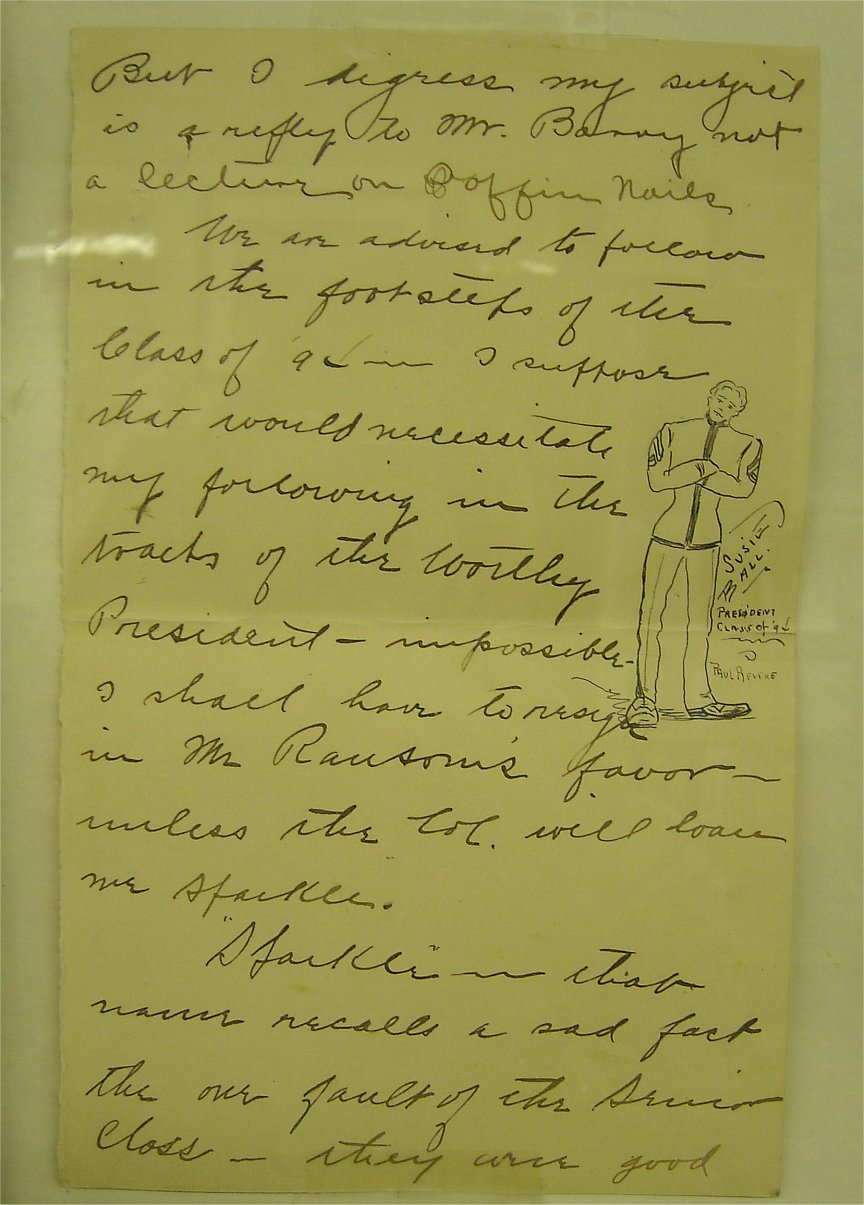 But I digress my subject
is a reply to Mr. Barry not
a lecture on Coffin Nails
We are advised to follow
in the footsteps of the
Class of '9 — I suppose
that would necessitate
my following in the
tracks of the Worthy
President — impossible —
I shall have to resign
in Mr Ransom's favor —
unless the Col. will loan
me Sparkle.
"Sparkle" — that
name recalls a sad fact
the one fault of the Senior
Class — they were good
SUSIE
BALL.
PRESIDENT
CLASS OF '9
PAUL REVERE